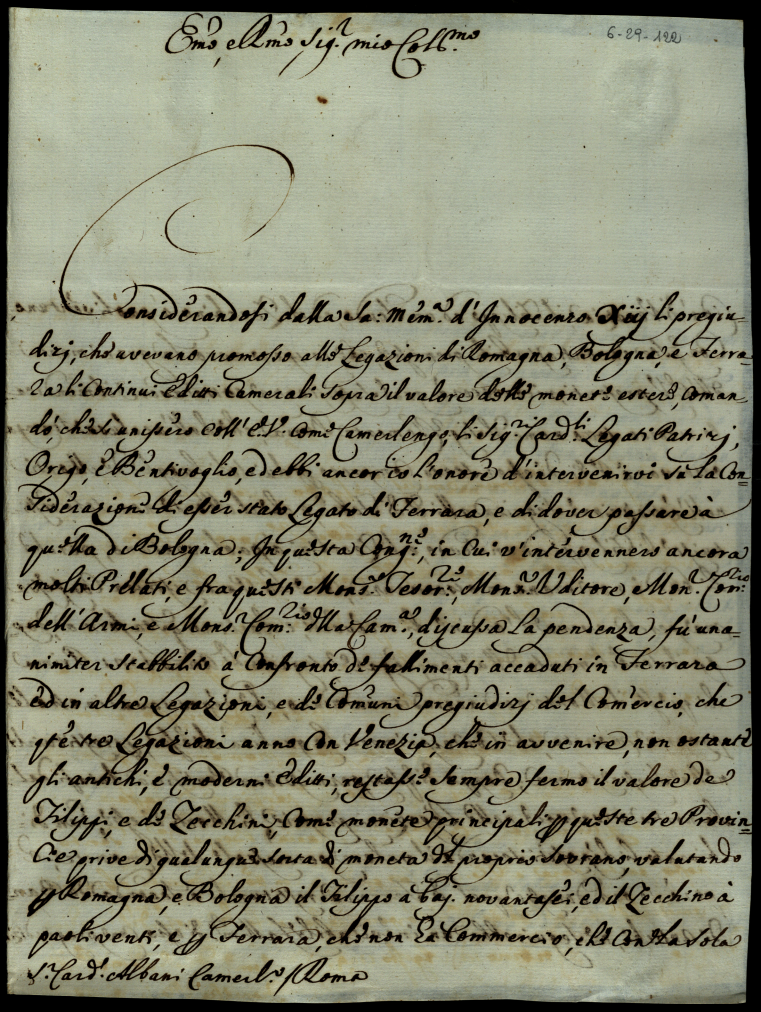 6-29-122
Em̃o, e Rm̃o Sig.r mio Coll.mo
Considerandosi dalla Sa: Mem.a d'Innocenzo Xiij li pregiu-
dizj, che avevano promosso alle Legazioni di Romagna, Bologna, e Ferra-
ra li Continui Editti Camerali sopra il valore delle monete estere, Coman-
dò, che si unissero coll' E.V. Come Camerlengo, li Sig.ri Card.li Legati Patrizj,
Origo, e Bentivoglio, ed ebbi ancor io l'onore d'intervenirvi su la Con=
siderazione di esser stato Legato di Ferrara, e di dover passare à
quella di Bologna; In questa Cong.ne, in Cui v'intervennero ancora
molti Prelati, e fra questi Mons.r Tesor.re, Mons.r Uditore, e Mon.r Com.rio
dell'Armi, e Mons.r Com.rio della Cam.a, discussa la pendenza, fù una-
nimiter stabbilito à Confronto de fallimenti accaduti in Ferrara
ed in altre Legazioni, e de Comuni pregiudizj del Comercio, che
qte tre Legazioni anno Con Venezia, che in avvenire, non ostante
gli antichi, e moderni Editti, restasse sempre fermo il valore de
Filippi, e de Zecchini, Come monete principali p queste tre Provin=
Cie prive di qualunque sorta di moneta del proprio Sovrano, valutando
p Romagna, e Bologna il Filippo a baj. novantasei, ed il Zecchino à
paoli venti, e p Ferrara, che non ha Commercio, che Con la sola
S.r Card.l Albani Camerl.o / Roma